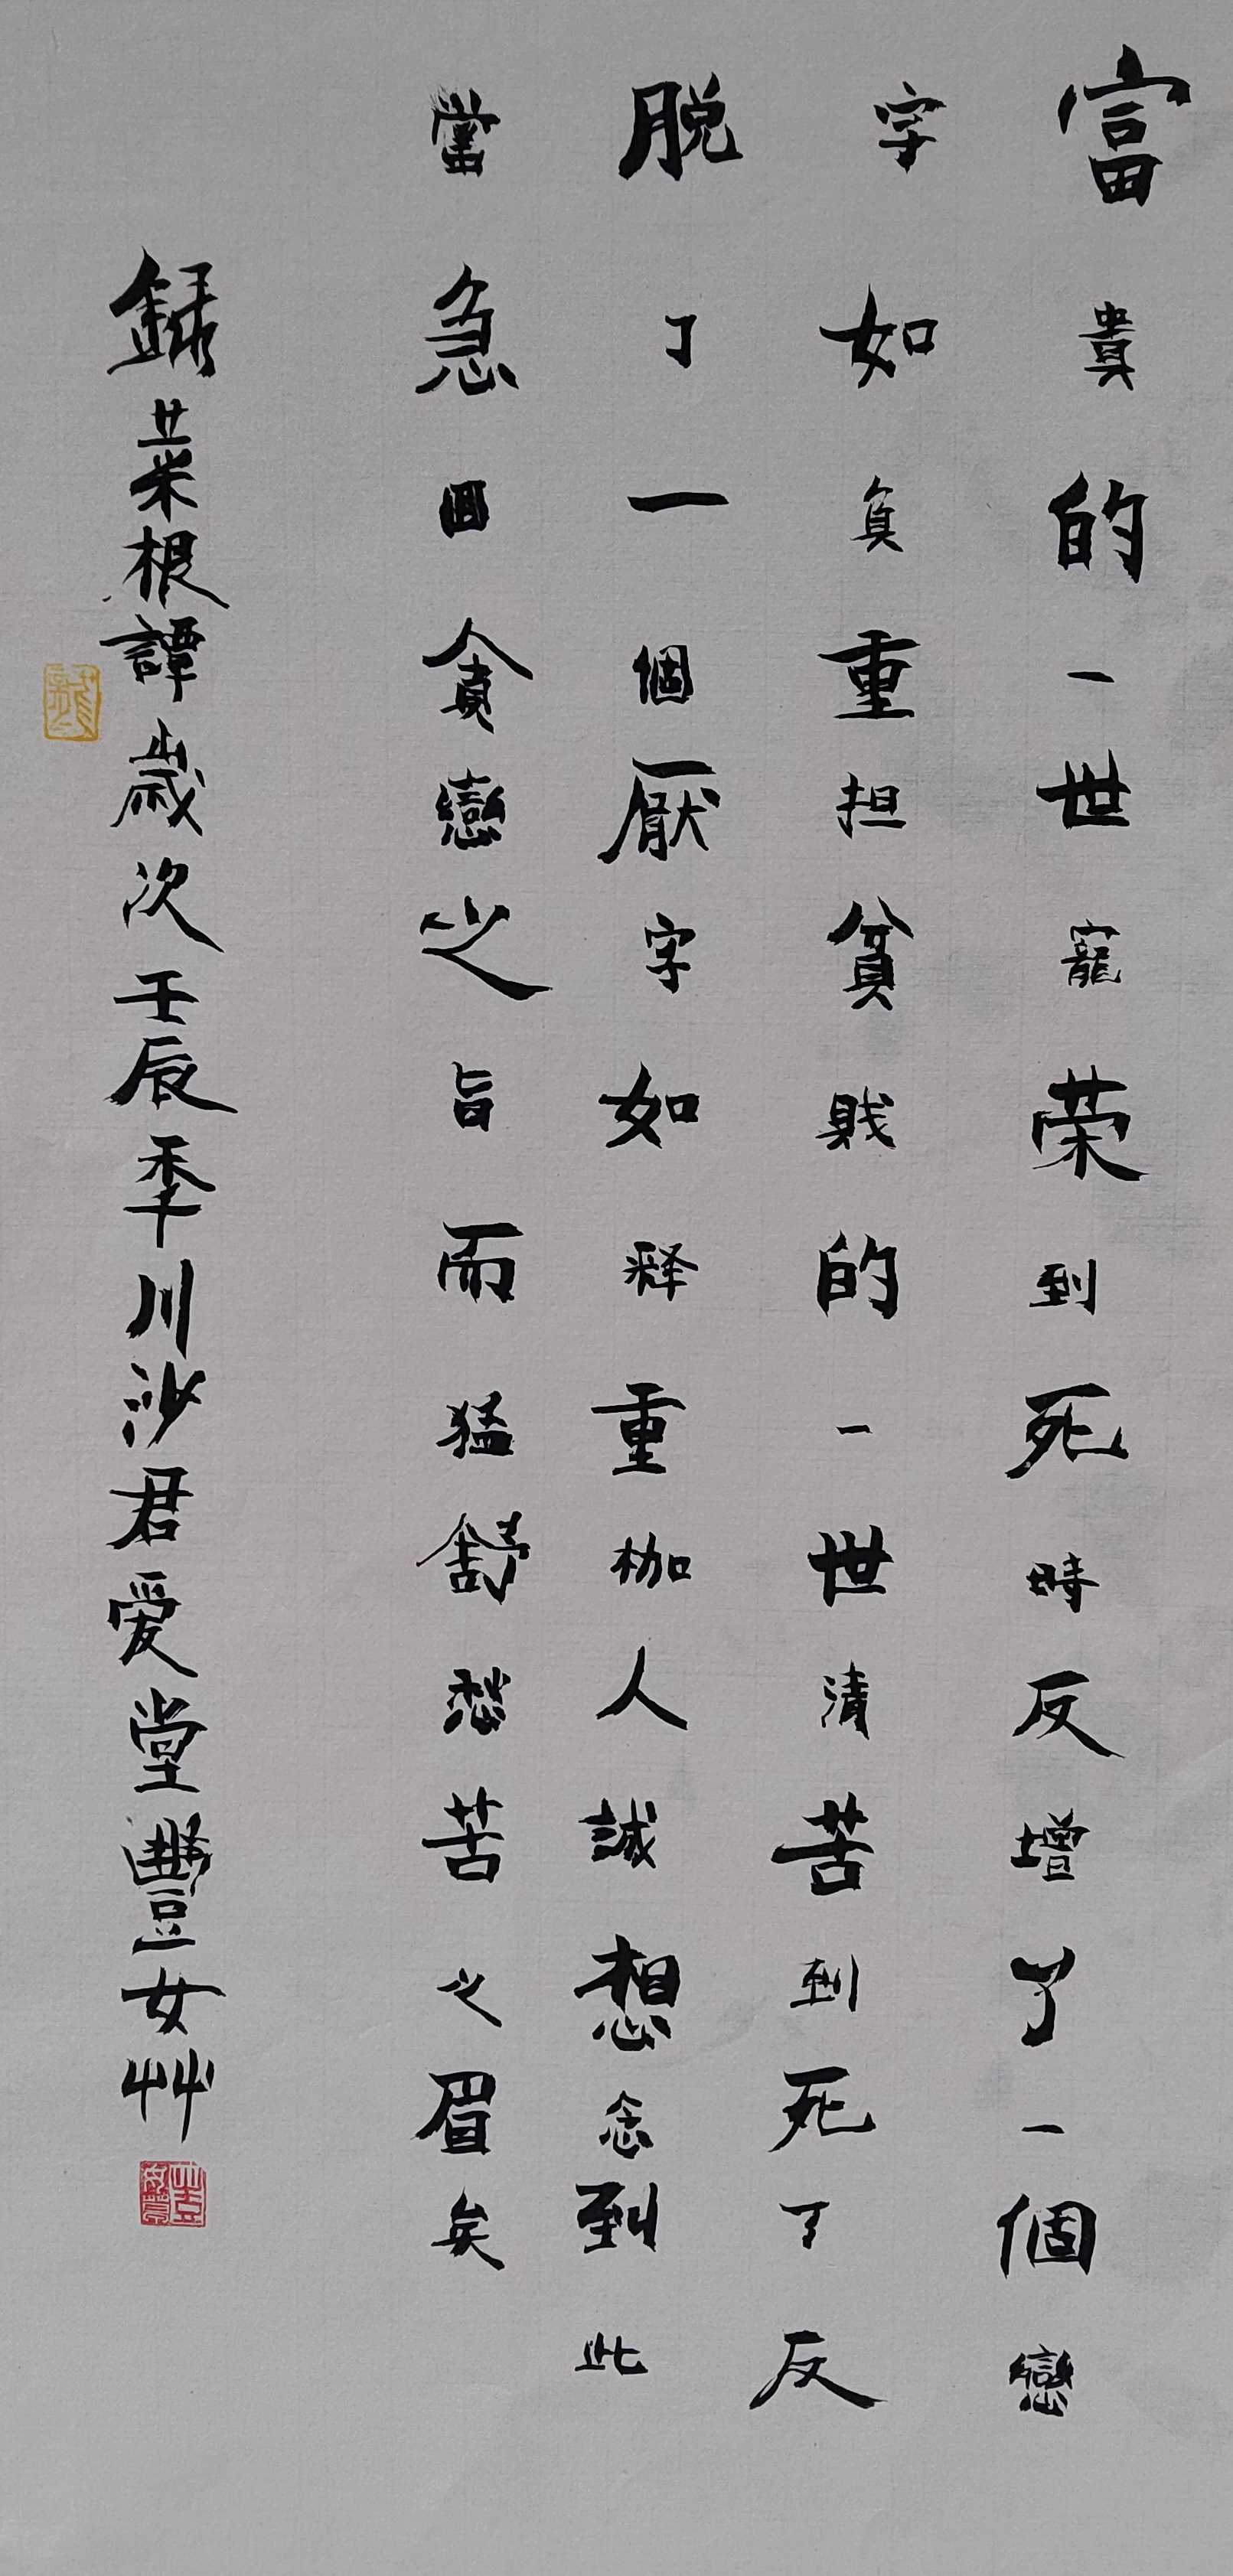 富貴的一世寵荣到死時反增了一個戀
字如負重担貧賎的一世清苦到死了反
脱了一個厭字如释重枷人誠想念到此
當急回貪戀之旨而猛舒愁苦之眉矣
録菜根譚歲次壬辰季川沙君爱堂豐女艸